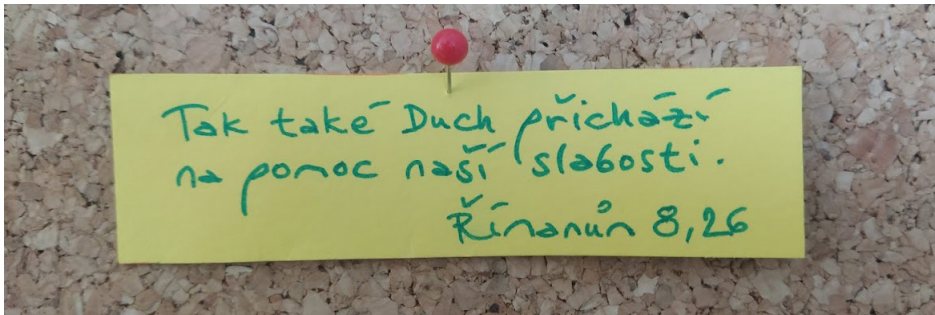 Tak také Duch přichází
na pomoc naší slabosti.
Římanům 8,26